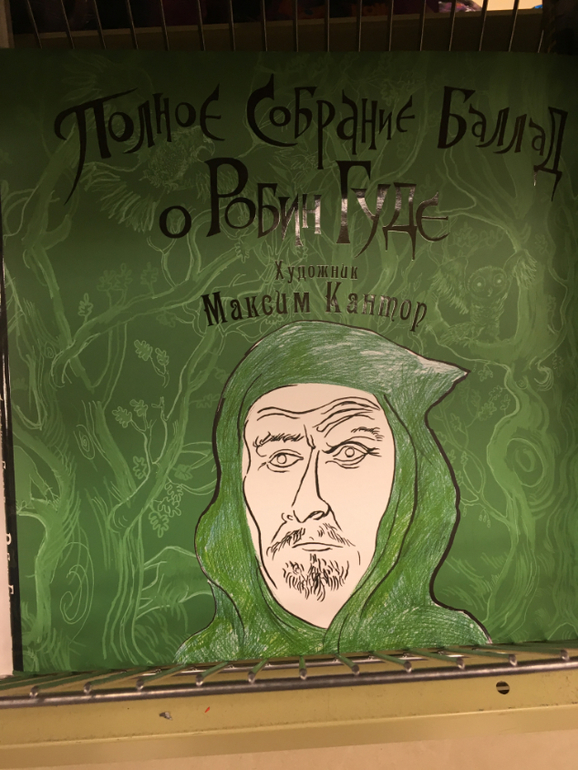 Полное Собрание Баллад
о Робин Гуде
Художник
Максим Кантор